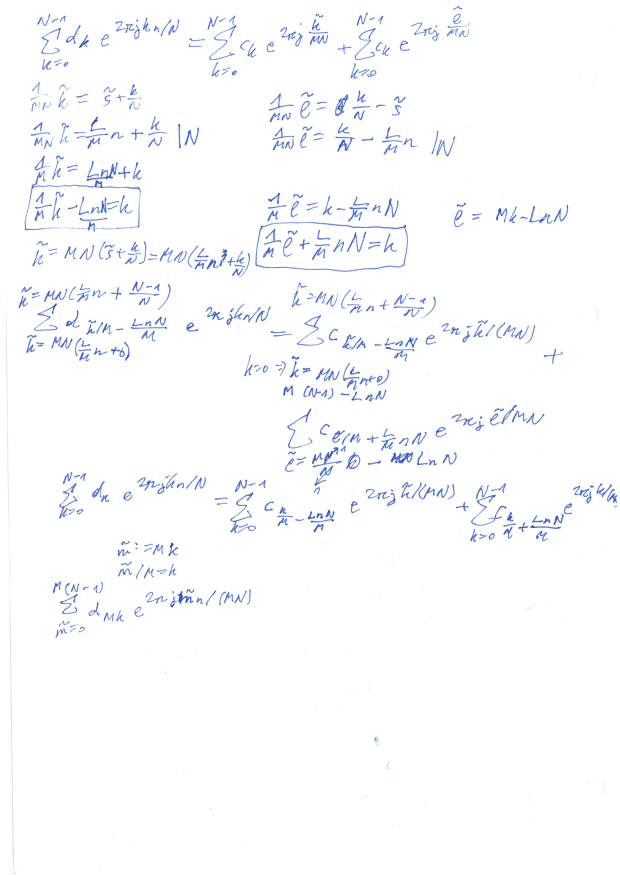 \sum_{k=0}^{N-1} d_k e^{2\pi j k n/N} = \sum_{k=0}^{N-1} c_k e^{2\pi j \frac{\tilde{k}}{MN}} + \sum_{k=0}^{N-1} c_k e^{2\pi j \frac{\tilde{e}}{MN}}
\frac{1}{MN} \tilde{k} = \tilde{s} + \frac{k}{N}    \frac{1}{MN} \tilde{e} = \frac{k}{N} - \tilde{s}
\frac{1}{MN} \tilde{k} = \frac{L}{M} n + \frac{k}{N} | N    \frac{1}{MN} \tilde{e} = \frac{k}{N} - \frac{L}{M} n | N
\frac{1}{M} \tilde{k} = \frac{LnN}{M} + k
\frac{1}{M} \tilde{k} - \frac{LnN}{M} = k    \frac{1}{M} \tilde{e} = k - \frac{L}{M} nN    \tilde{e} = Mk - LnN
\tilde{k} = MN(\tilde{s} + \frac{k}{N}) = MN(\frac{L}{M} n + \frac{k}{N})    \frac{1}{M} \tilde{e} + \frac{L}{M} nN = k
\tilde{k} = MN(\frac{L}{M} n + \frac{N-1}{N})    \tilde{k} = MN(\frac{L}{M} n + \frac{N-1}{N})
\sum d_{\tilde{k}/M - \frac{LnN}{M}} e^{2\pi j k n/N} = \sum c_{\tilde{k}/M - \frac{LnN}{M}} e^{2\pi j \tilde{k}/(MN)} +
\tilde{k} = MN(\frac{L}{M} n + 0)    k=0 \Rightarrow \tilde{k} = MN(\frac{L}{M} n + 0)
M(N-1) - LnN
\sum c_{e/M + \frac{L}{M} nN} e^{2\pi j \tilde{e}/MN}
\tilde{e} = - LnN
\sum_{k=0}^{N-1} d_k e^{2\pi j k n/N} = \sum_{k=0}^{N-1} c_{\frac{k}{M} - \frac{LnN}{M}} e^{2\pi j \tilde{k}/(MN)} + \sum_{k=0}^{N-1} c_{\frac{k}{M} + \frac{LnN}{M}} e^{2\pi j k/(M
\tilde{m} := Mk
\tilde{m}/M = k
\sum_{\tilde{m}=0}^{M(N-1)} d_{Mk} e^{2\pi j \tilde{m} n/(MN)}